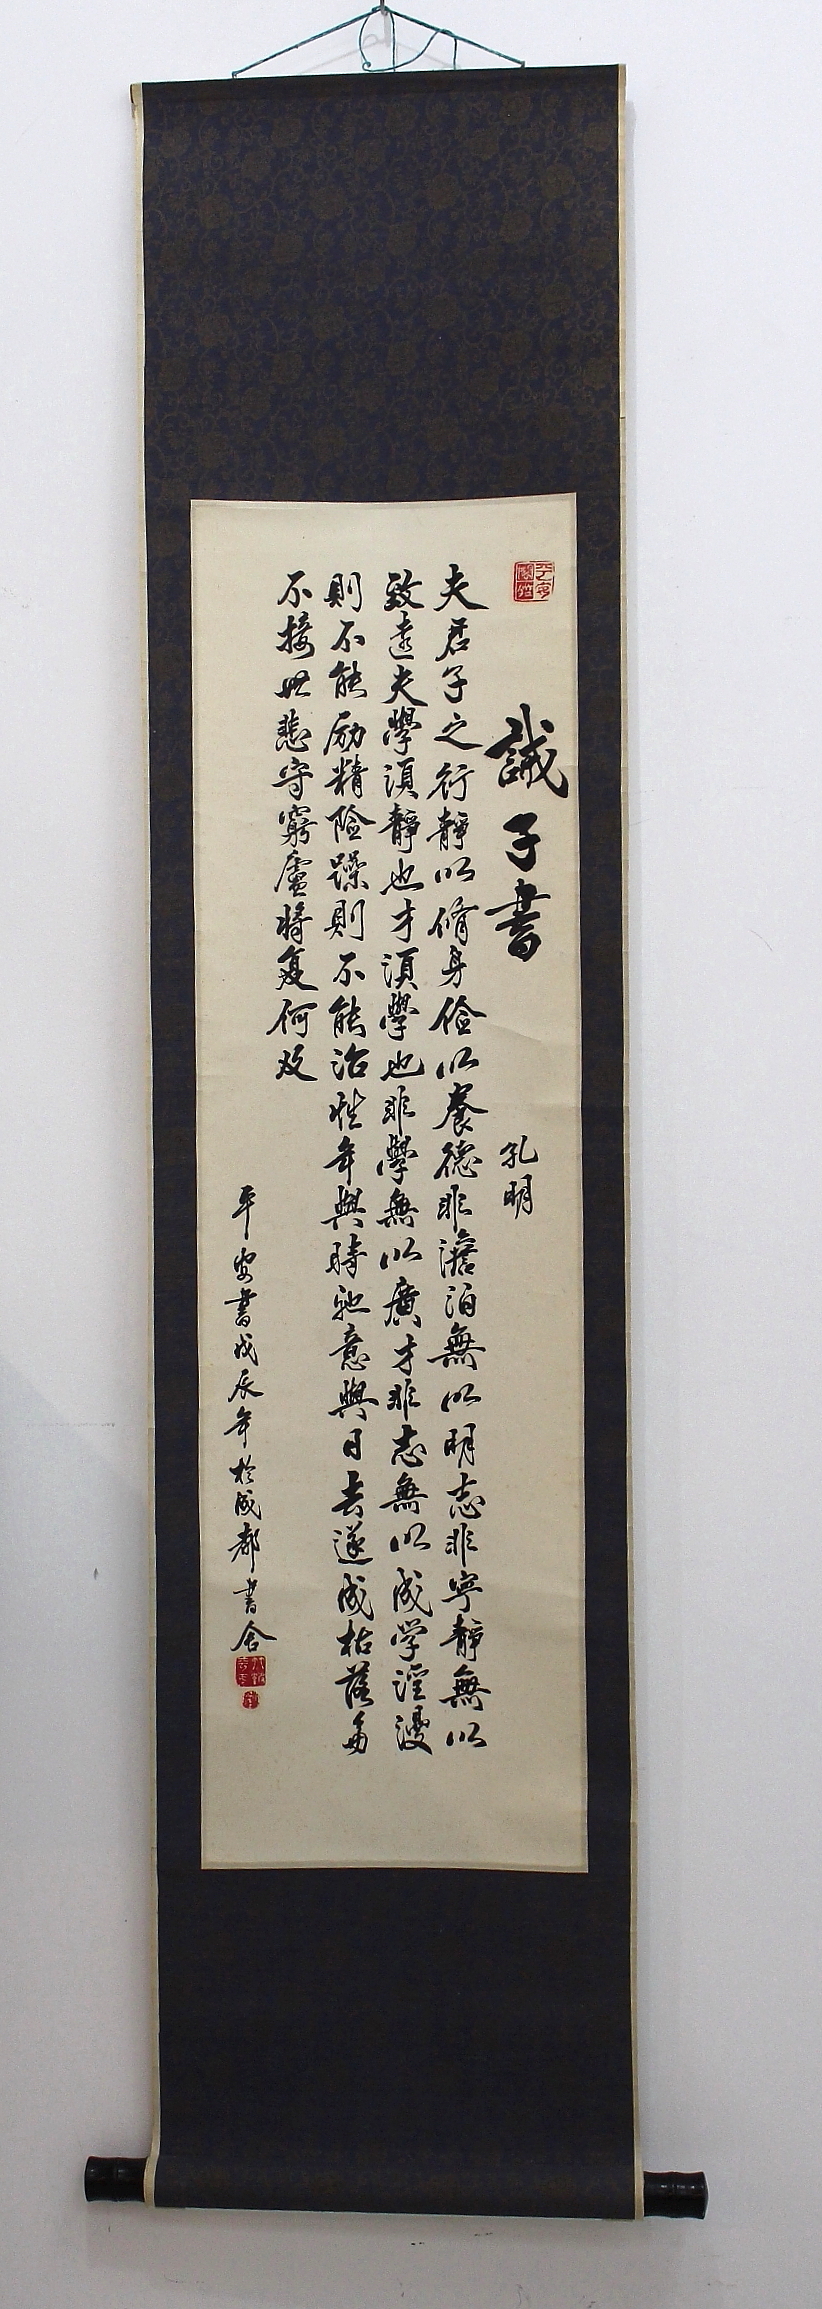 誡子書
孔明
夫君子之行靜以脩身儉以養德非澹泊無以明志非寧靜無以
致遠夫學須靜也才須學也非學無以廣才非志無以成学滛漫
則不能励精险躁則不能治性年與時馳意與日去遂成枯落多
不接世悲守窮廬將复何及
平安書戊辰年於成都書舍